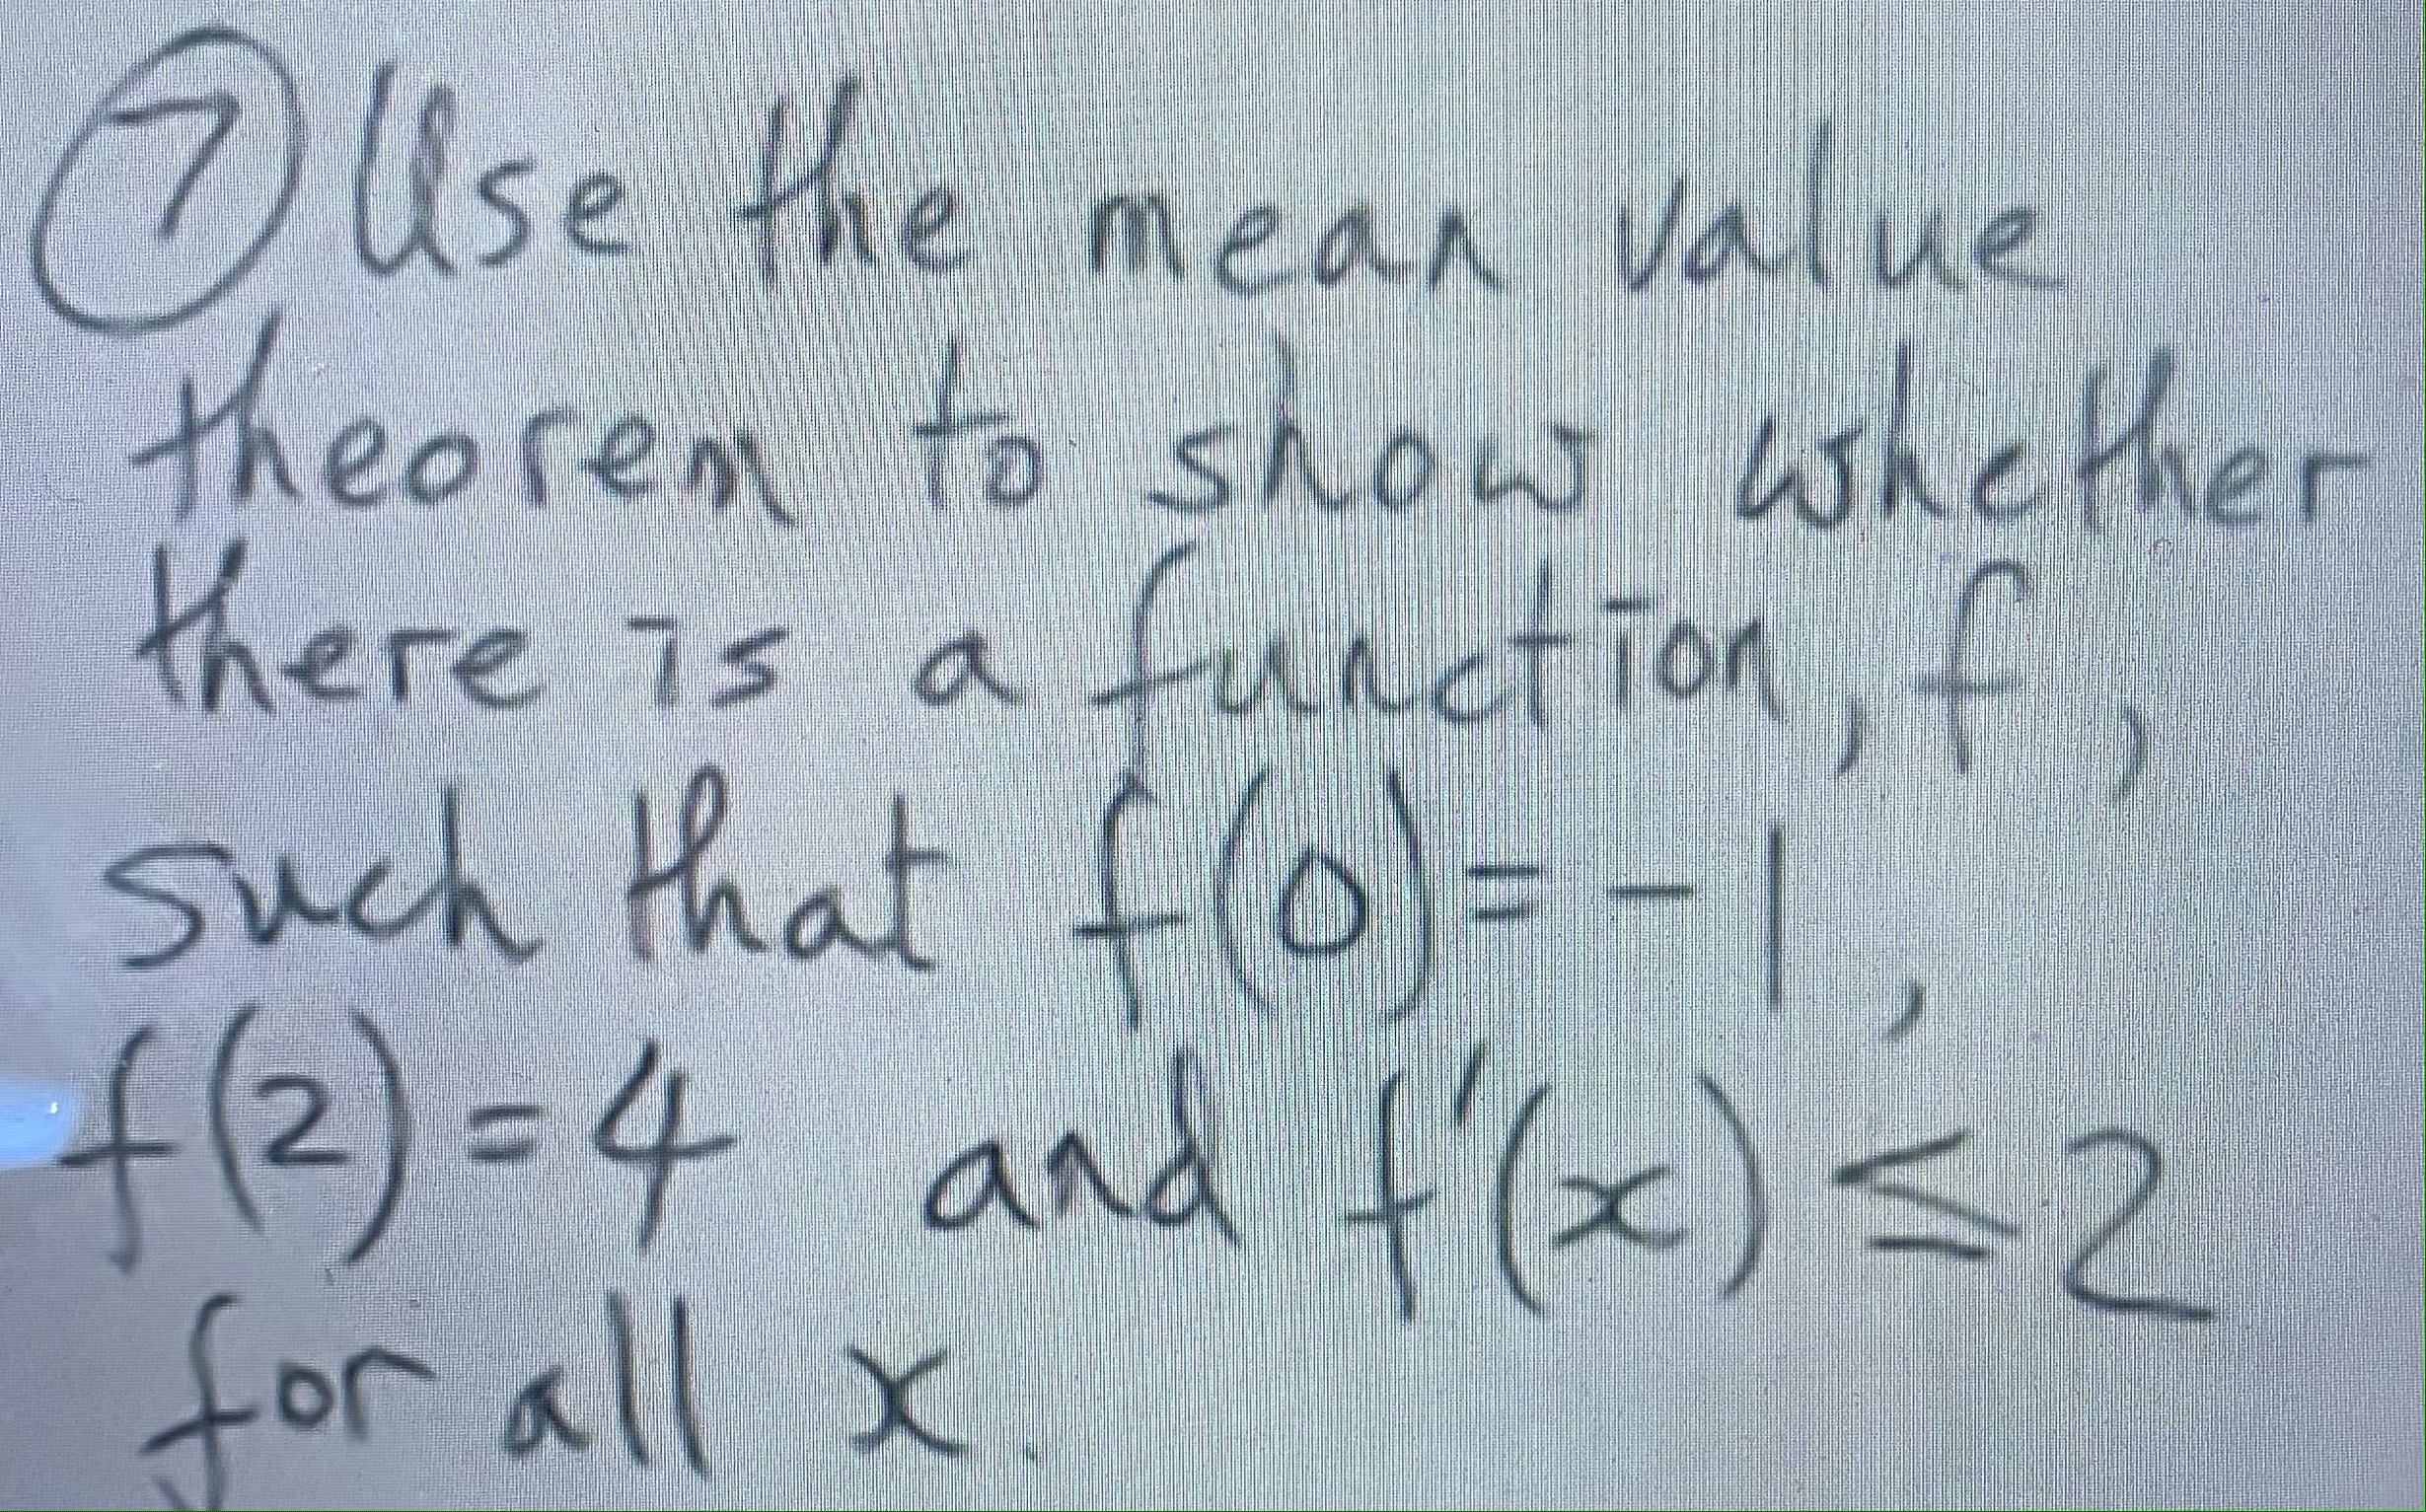 ⑦ Use the mean value
theorem to show whether
there is a function, f,
such that f(0) = -1,
f(2) = 4 and f'(x) ≤ 2
for all x.